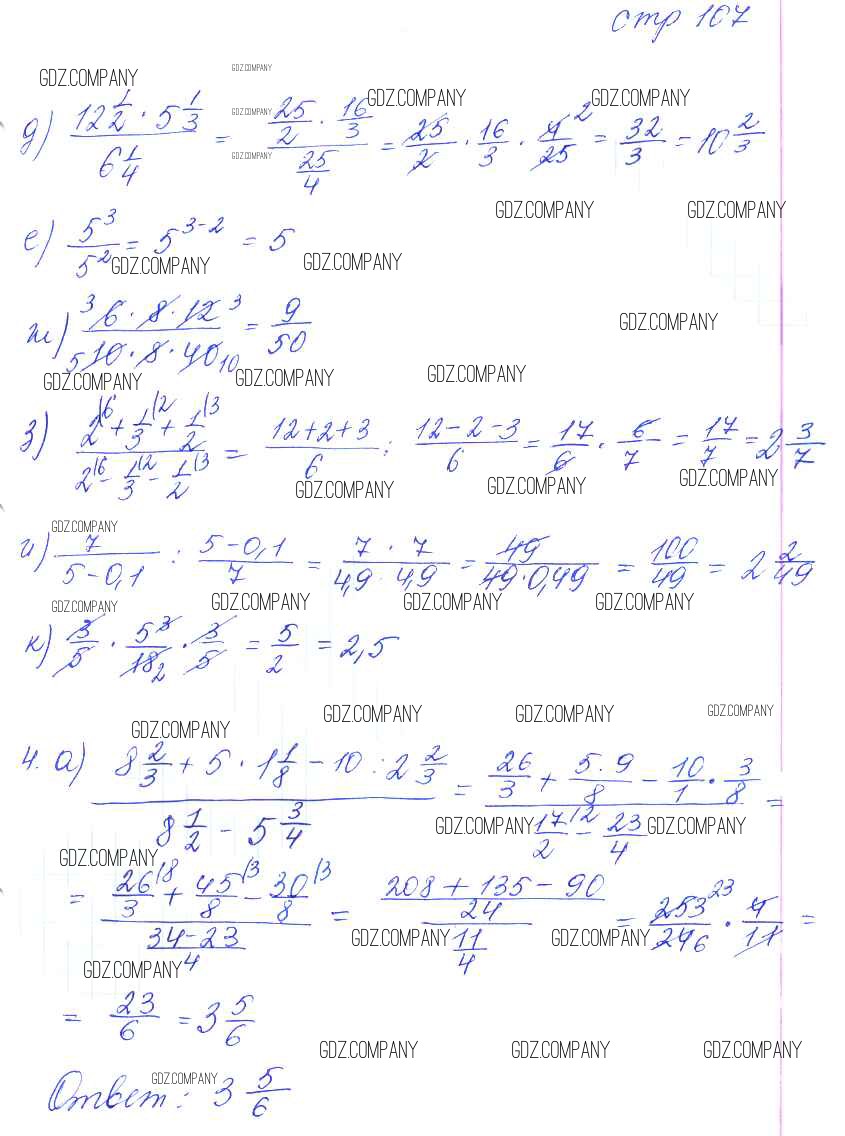 стр 107
GDZ.COMPANY GDZ.COMPANY
GDZ.COMPANY GDZ.COMPANY GDZ.COMPANY
д) (12 1/2 · 5 1/3)/(6 1/4) = (25/2 · 16/3)/(25/4) = 25/2 · 16/3 · 4²/25 = 32/3 = 10 2/3
GDZ.COMPANY
GDZ.COMPANY GDZ.COMPANY
е) 5³/5² = 5³⁻² = 5
GDZ.COMPANY GDZ.COMPANY
GDZ.COMPANY
ж) (³6 · 8 · 12 ³)/(₅10 · 8 · 40₁₀) = 9/50
GDZ.COMPANY GDZ.COMPANY GDZ.COMPANY
з) (2|⁶ + 1/3|² + 1/2|³)/(2|⁶ - 1/3|² - 1/2|³) = (12+2+3)/6 : (12-2-3)/6 = 17/6 · 6/7 = 17/7 = 2 3/7
GDZ.COMPANY GDZ.COMPANY GDZ.COMPANY
GDZ.COMPANY
и) 7/(5-0,1) : (5-0,1)/7 = (7 · 7)/(4,9 · 4,9) = 49/(49·0,49) = 100/49 = 2 2/49
GDZ.COMPANY GDZ.COMPANY GDZ.COMPANY GDZ.COMPANY
к) 3/5 · 5³/18₂ · 3/5 = 5/2 = 2,5
GDZ.COMPANY GDZ.COMPANY GDZ.COMPANY GDZ.COMPANY
4. а) (8 2/3 + 5 · 1 1/8 - 10 : 2 2/3)/(8 1/2 - 5 3/4) = (26/3 + (5·9)/8 - 10/1 · 3/8)/(17/2|² - 23/4) =
GDZ.COMPANY GDZ.COMPANY
GDZ.COMPANY
= (26/3|⁸ + 45/8|³ - 30/8|³)/((34-23)/4) = ((208+135-90)/24)/(11/4) = 253²³/24₆ · 4/11 =
GDZ.COMPANY GDZ.COMPANY
GDZ.COMPANY
= 23/6 = 3 5/6
GDZ.COMPANY GDZ.COMPANY GDZ.COMPANY
GDZ.COMPANY
Ответ: 3 5/6